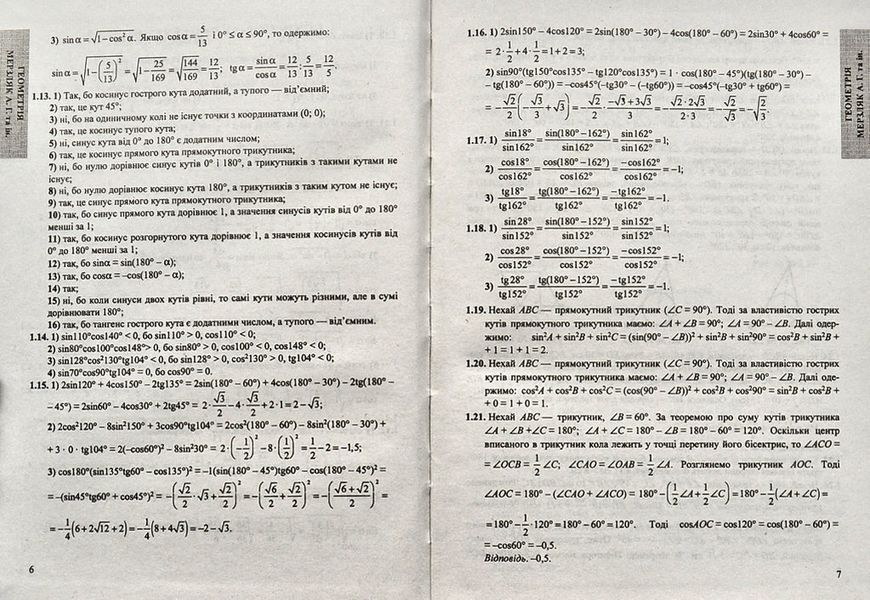 ГЕОМЕТРІЯ
МЕРЗЛЯК А. Г. та ін.
3) sinα = √(1 – cos²α). Якщо cosα = 5/13 і 0° ≤ α ≤ 90°, то одержимо:
sinα = √(1 – (5/13)²) = √(1 – 25/169) = √(144/169) = 12/13; tgα = sinα/cosα = 12/13 : 5/13 = 12/5.
1.13. 1) Так, бо косинус гострого кута додатний, а тупого — від'ємний;
2) так, це кут 45°;
3) ні, бо на одиничному колі не існує точки з координатами (0; 0);
4) так, це косинус тупого кута;
5) ні, синус кута від 0° до 180° є додатним числом;
6) так, це косинус прямого кута прямокутного трикутника;
7) ні, бо нулю дорівнює синус кутів 0° і 180°, а трикутників з такими кутами не
існує;
8) ні, бо нулю дорівнює косинус кута 180°, а трикутників з таким кутом не існує;
9) так, це синус прямого кута прямокутного трикутника;
10) так, бо синус прямого кута дорівнює 1, а значення синусів кутів від 0° до 180°
менші за 1;
11) так, бо косинус розгорнутого кута дорівнює 1, а значення косинусів кутів від
0° до 180° менші за 1;
12) так, бо sinα = sin(180° – α);
13) так, бо cosα = –cos(180° – α);
14) так;
15) ні, бо коли синуси двох кутів рівні, то самі кути можуть різними, але в сумі
дорівнювати 180°;
16) так, бо тангенс гострого кута є додатними числом, а тупого — від'ємним.
1.14. 1) sin110°cos140° < 0, бо sin110° > 0, cos110° < 0;
2) sin80°cos100°cos148° > 0, бо sin80° > 0, cos100° < 0, cos148° < 0;
3) sin128°cos²130°tg104° < 0, бо sin128° > 0, cos²130° > 0, tg104° < 0;
4) sin70°cos90°tg104° = 0, бо cos90° = 0.
1.15. 1) 2sin120° + 4cos150° – 2tg135° = 2sin(180° – 60°) + 4cos(180° – 30°) – 2tg(180° –
– 45°) = 2sin60° – 4cos30° + 2tg45° = 2·√3/2 – 4·√3/2 + 2·1 = 2 – √3;
2) 2cos²120° – 8sin²150° + 3cos90°tg104° = 2cos²(180° – 60°) – 8sin²(180° – 30°) +
+ 3 · 0 · tg104° = 2(–cos60°)² – 8sin²30° = 2·(–1/2)² – 8·(1/2)² = 1/2 – 2 = –1,5;
3) cos180°(sin135°tg60° – cos135°)² = –1(sin(180° – 45°)tg60° – cos(180° – 45°)² =
= –(sin45°tg60° + cos45°)² = –(√2/2·√3 + √2/2)² = –(√6/2 + √2/2)² = –((√6 + √2)/2)² =
= –1/4(6 + 2√12 + 2) = –1/4(8 + 4√3) = –2 – √3.
6
1.16. 1) 2sin150° – 4cos120° = 2sin(180° – 30°) – 4cos(180° – 60°) = 2sin30° + 4cos60° =
= 2·1/2 + 4·1/2 = 1 + 2 = 3;
2) sin90°(tg150°cos135° – tg120°cos135°) = 1 · cos(180° – 45°)(tg(180° – 30°) –
– tg(180° – 60°)) = –cos45°(–tg30° – (–tg60°)) = –cos45°(–tg30° + tg60°) =
= –√2/2(–√3/3 + √3) = –√2/2 · (–√3 + 3√3)/3 = –(√2·2√3)/(2·3) = –√2/√3 = –√(2/3).
1.17. 1) sin18°/sin162° = sin(180° – 162°)/sin162° = sin162°/sin162° = 1;
2) cos18°/cos162° = cos(180° – 162°)/cos162° = –cos162°/cos162° = –1;
3) tg18°/tg162° = tg(180° – 162°)/tg162° = –tg162°/tg162° = –1.
1.18. 1) sin28°/sin152° = sin(180° – 152°)/sin152° = sin152°/sin152° = 1;
2) cos28°/cos152° = cos(180° – 152°)/cos152° = –cos152°/cos152° = –1;
3) tg28°/tg152° = tg(180° – 152°)/tg152° = –tg152°/tg152° = –1.
1.19. Нехай ABC — прямокутний трикутник (∠C = 90°). Тоді за властивістю гострих
кутів прямокутного трикутника маємо: ∠A + ∠B = 90°; ∠A = 90° – ∠B. Далі одер-
жимо: sin²A + sin²B + sin²C = (sin(90° – ∠B))² + sin²B + sin²90° = cos²B + sin²B +
+ 1 = 1 + 1 = 2.
1.20. Нехай ABC — прямокутний трикутник (∠C = 90°). Тоді за властивістю гострих
кутів прямокутного трикутника маємо: ∠A + ∠B = 90°; ∠A = 90° – ∠B. Далі оде-
ржимо: cos²A + cos²B + cos²C = (cos(90° – ∠B))² + cos²B + cos²90° = sin²B + cos²B +
+ 0 = 1 + 0 = 1.
1.21. Нехай ABC — трикутник, ∠B = 60°. За теоремою про суму кутів трикутника
∠A + ∠B + ∠C = 180°; ∠A + ∠C = 180° – ∠B = 180° – 60° = 120°. Оскільки центр
вписаного в трикутник кола лежить у точці перетину його бісектрис, то ∠ACO =
= ∠OCB = 1/2∠C; ∠CAO = ∠OAB = 1/2∠A. Розглянемо трикутник AOC. Тоді
∠AOC = 180° – (∠CAO + ∠ACO) = 180° – (1/2∠A + 1/2∠C) = 180° – 1/2(∠A + ∠C) =
= 180° – 1/2·120° = 180° – 60° = 120°. Тоді cosAOC = cos120° = cos(180° – 60°) =
= –cos60° = –0,5.
Відповідь. –0,5.
7
ГЕОМЕТРІЯ
МЕРЗЛЯК А. Г. та ін.